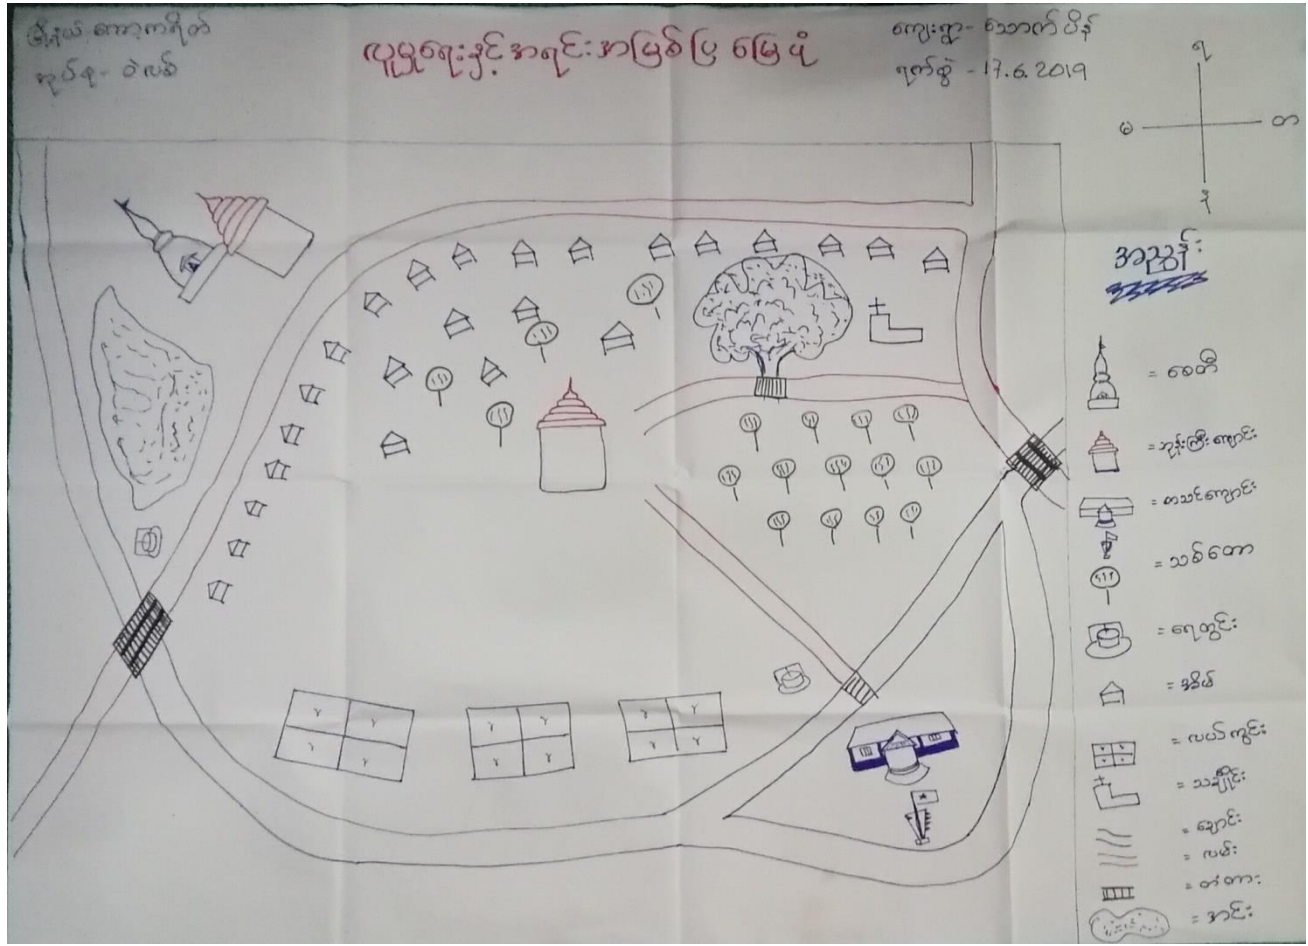 မြို့နယ် ကော့ကရိတ်
အုပ်စု - ဝဲလစ်
လူမှုရေးနှင့် အရင်းအမြစ်ပြ မြေပုံ
ကျေးရွာ - သောက်ပိန်
ရက်စွဲ - 17.6.2019
မ
တ
အညွှန်း
= စေတီ
= ဘုန်းကြီးကျောင်း
= စာသင်ကျောင်း
= သစ်တော
= ရေတွင်း
= အိမ်
= လယ်ကွင်း
= သချိုင်း
= ချောင်း
= လမ်း
= တံတား
= အင်း